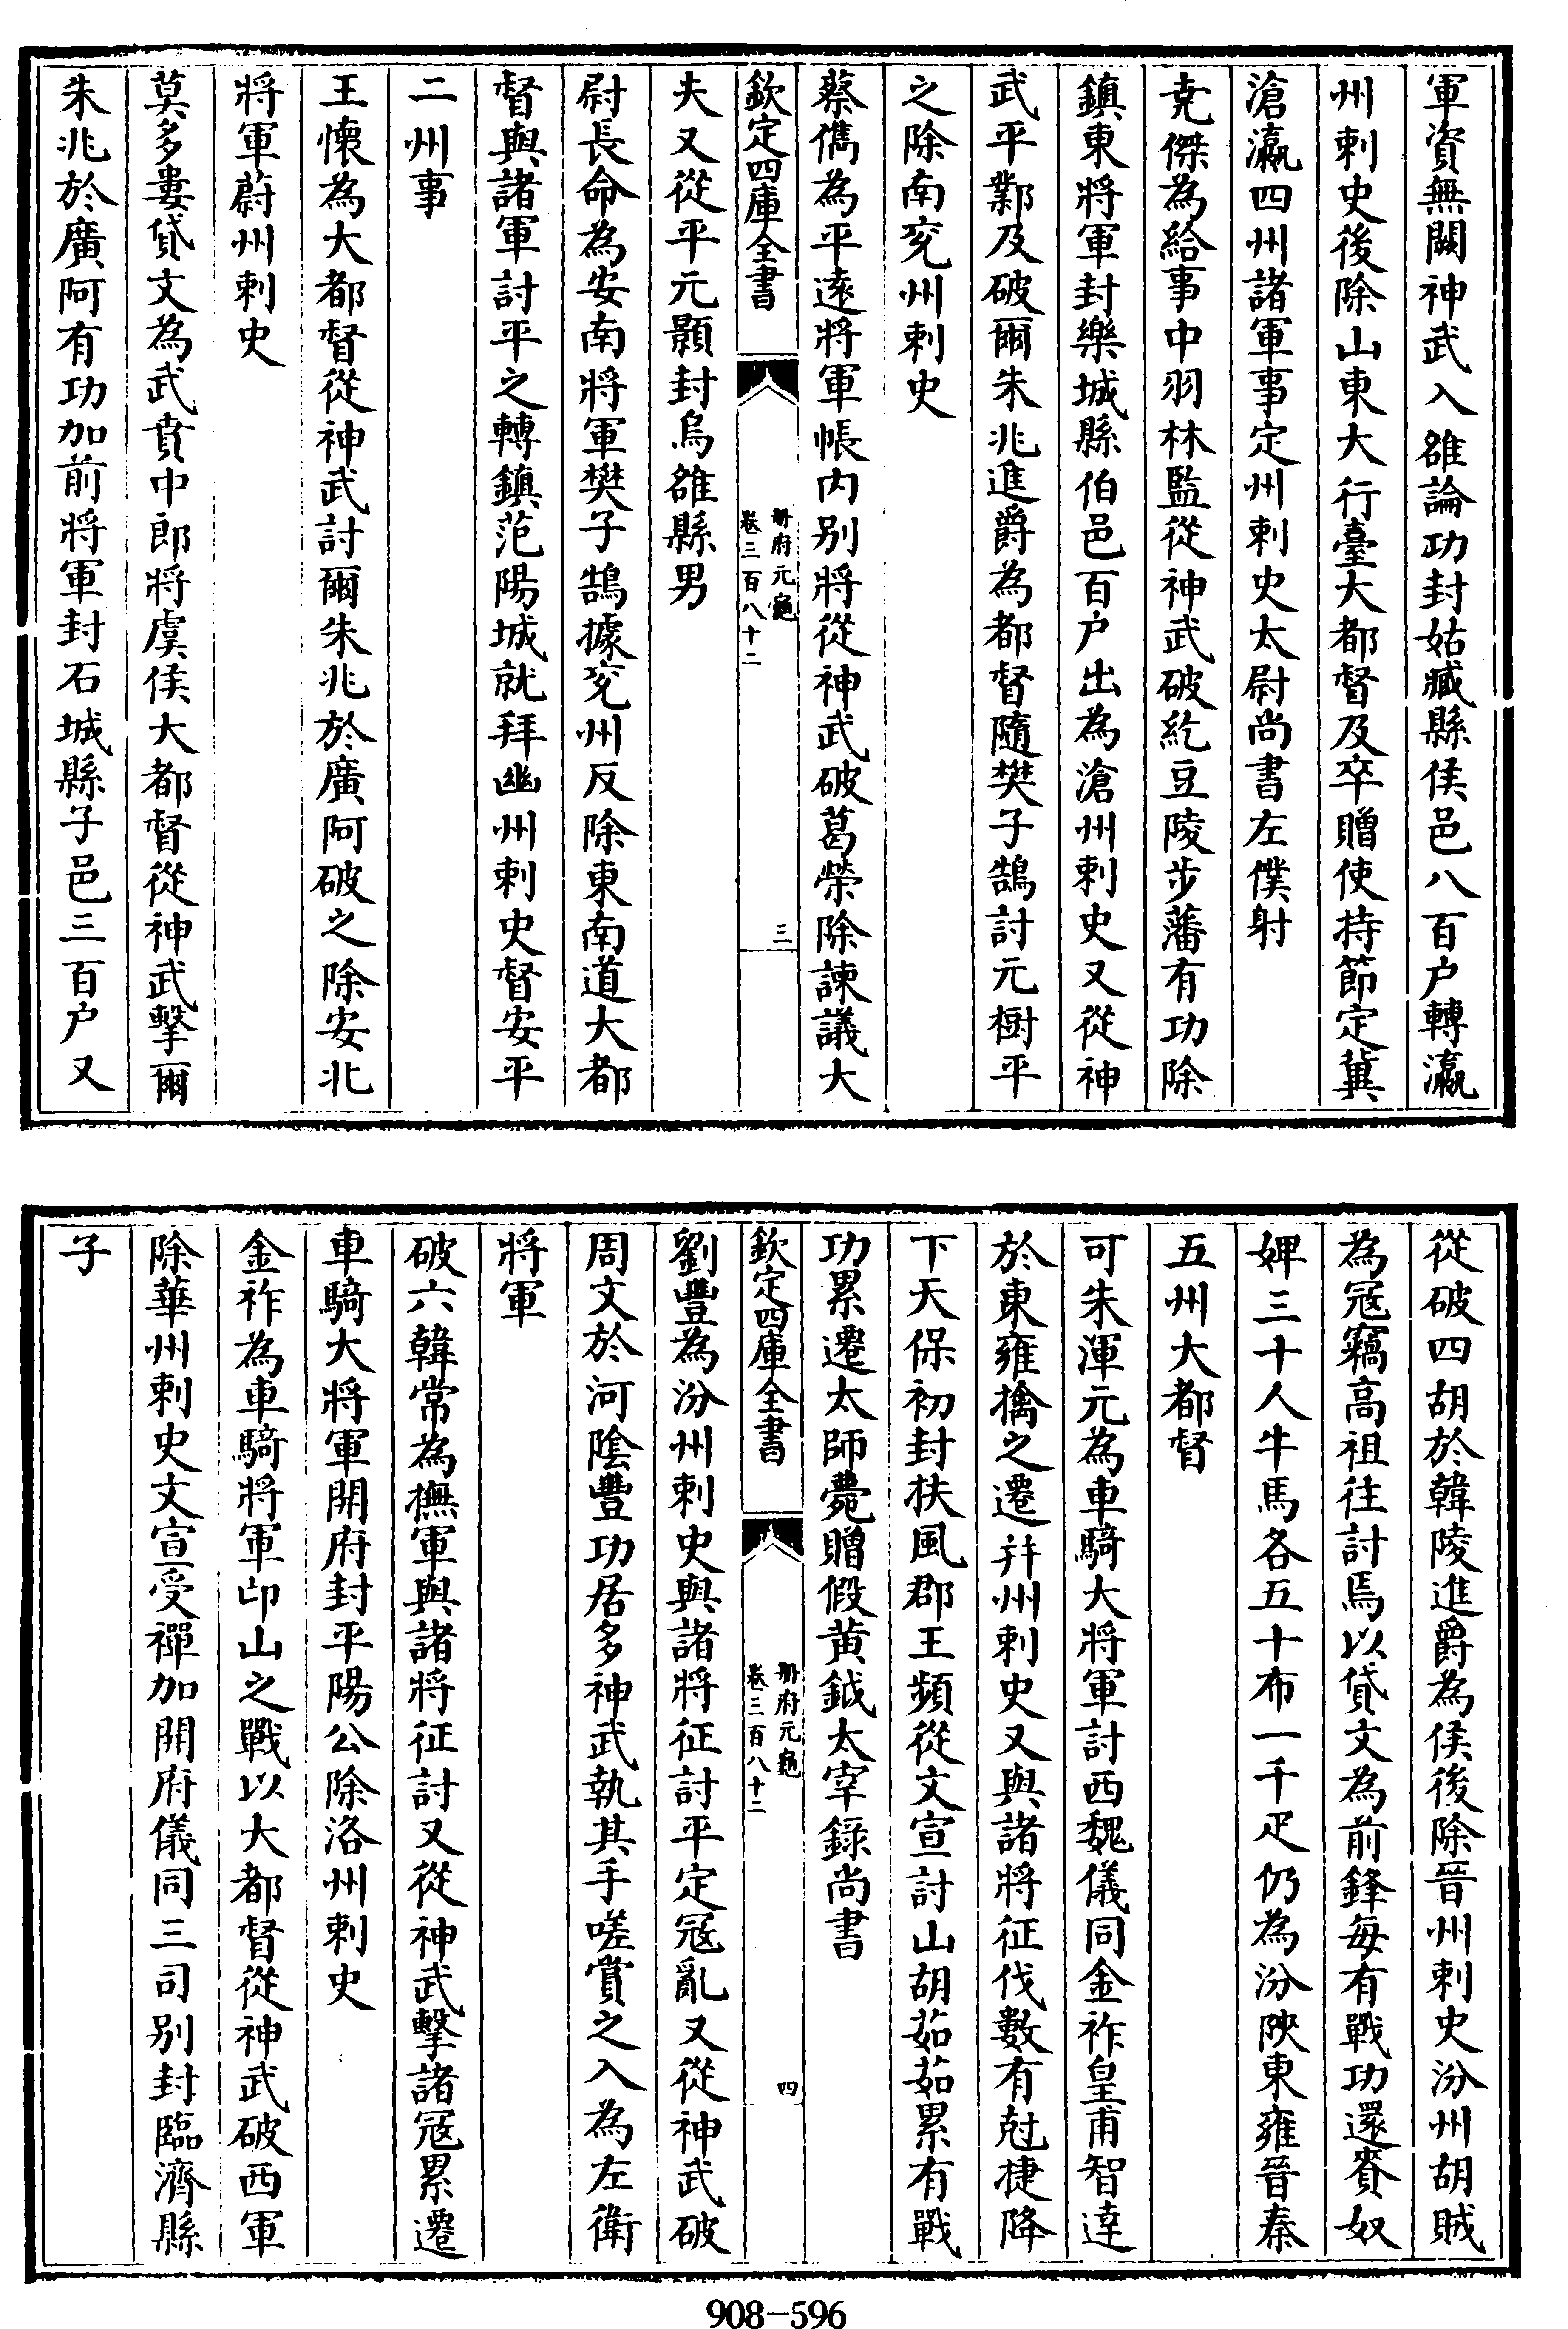 軍資無闕神武入雒論功封姑臧縣侯邑八百户轉瀛
州刺史後除山東大行臺大都督及卒贈使持節定冀
滄瀛四州諸軍事定州刺史太尉尚書左僕射
堯傑為給事中羽林監從神武破紇豆陵步藩有功除
鎮東將軍封樂城縣伯邑百户出為滄州刺史又從神
武平鄴及破爾朱兆進爵為都督隨樊子鵠討元樹平
之除南兗州刺史
蔡儁為平遠將軍帳内别將從神武破葛榮除諫議大
欽定四庫全書
册府元龜
卷三百八十二
三
夫又從平元顥封烏雒縣男
尉長命為安南將軍樊子鵠據兗州反除東南道大都
督與諸軍討平之轉鎮范陽城就拜幽州刺史督安平
二州事
王懷為大都督從神武討爾朱兆於廣阿破之除安北
將軍蔚州刺史
莫多婁貸文為武賁中郎將虞侯大都督從神武擊爾
朱兆於廣阿有功加前將軍封石城縣子邑三百户又
從破四胡於韓陵進爵為侯後除晉州刺史汾州胡賊
為宼竊高祖往討焉以貸文為前鋒每有戰功還賚奴
婢三十人牛馬各五十布一千疋仍為汾陜東雍晉秦
五州大都督
可朱渾元為車騎大將軍討西魏儀同金祚皇甫智達
於東雍擒之遷并州刺史又與諸將征伐數有尅捷降
下天保初封扶風郡王頻從文宣討山胡茹茹累有戰
功累遷太師薨贈假黄鉞太宰録尚書
欽定四庫全書
册府元龜
卷三百八十二
四
劉豐為汾州刺史與諸將征討平定宼亂又從神武破
周文於河陰豐功居多神武執其手嗟賞之入為左衛
將軍
破六韓常為撫軍與諸將征討又從神武擊諸宼累遷
車騎大將軍開府封平陽公除洛州刺史
金祚為車騎將軍邙山之戰以大都督從神武破西軍
除華州刺史文宣受禪加開府儀同三司别封臨濟縣
子
908-596